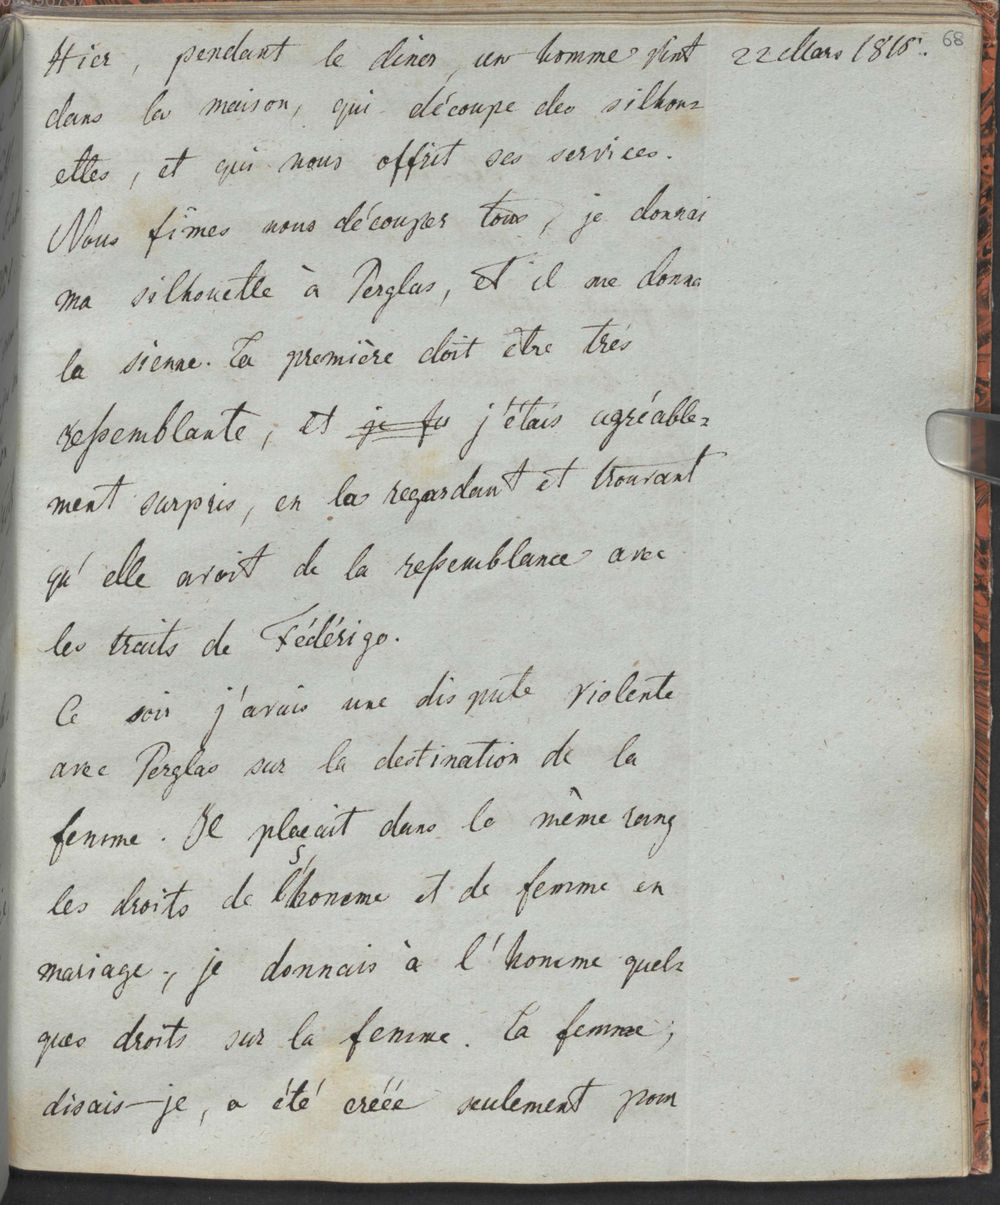 68
22 Mars 1816.
Hier, pendant le diner, un homme vint
dans la maison, qui découpe des silhou=
ettes, et qui nous offrit ses services.
Nous fîmes nous découper tous, je donnai
ma silhouette à Perglas, et il me donna
la sienne. La première doit être très
ressemblante, et je fus j'étais agréable=
ment surpris, en la regardant et trouvant
qu'elle avoit de la ressemblance avec
les traits de Fédérigo.
Ce soir j'avais une dispute violente
avec Perglas sur la destination de la
femme. Il plaçait dans le même rang
les droits de l'homme et de femme en
mariage, je donnais à l'homme quel=
ques droits sur la femme. La femme,
disais-je, a été créée seulement pour